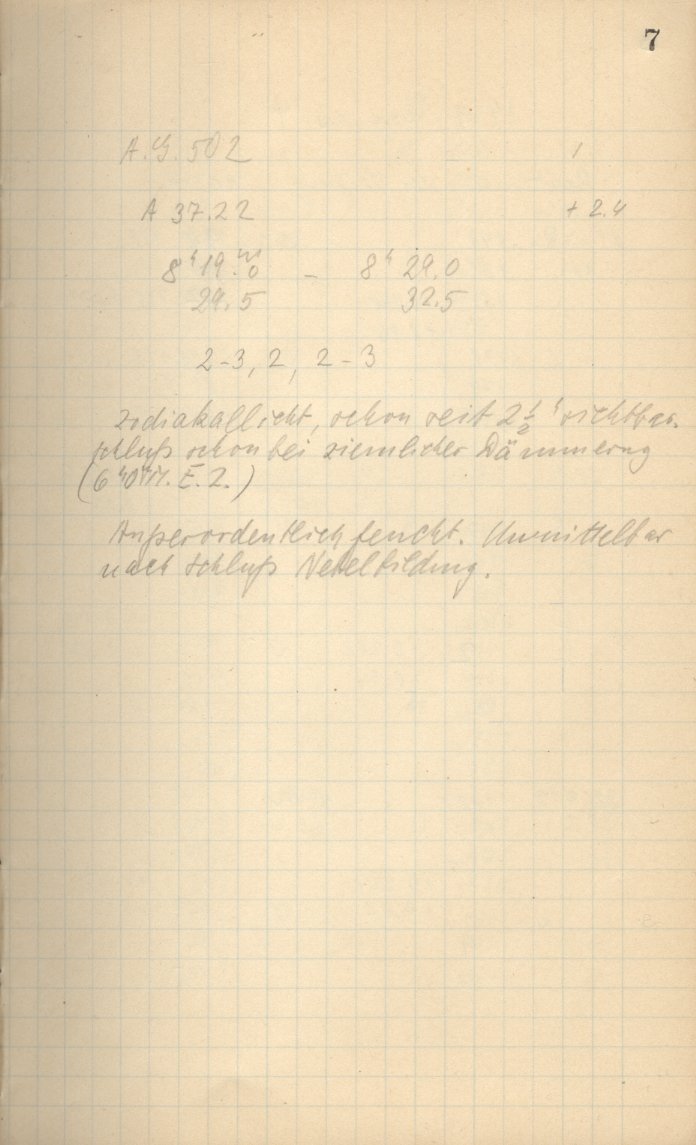 7
A.G. 502 1
A 37.22 + 2.4
8ʰ 19.ᵐ0 – 8ʰ 29.0
29.5 32.5
2-3, 2, 2-3
Zodiakallicht, schon seit 2½ʰ sichtbar.
Schluß schon bei ziemlicher Dämmerung
(6ʰ0ᵐ M.E.Z.)
Außerordentlich feucht. Unmittelbar
nach Schluß Nebelbildung.